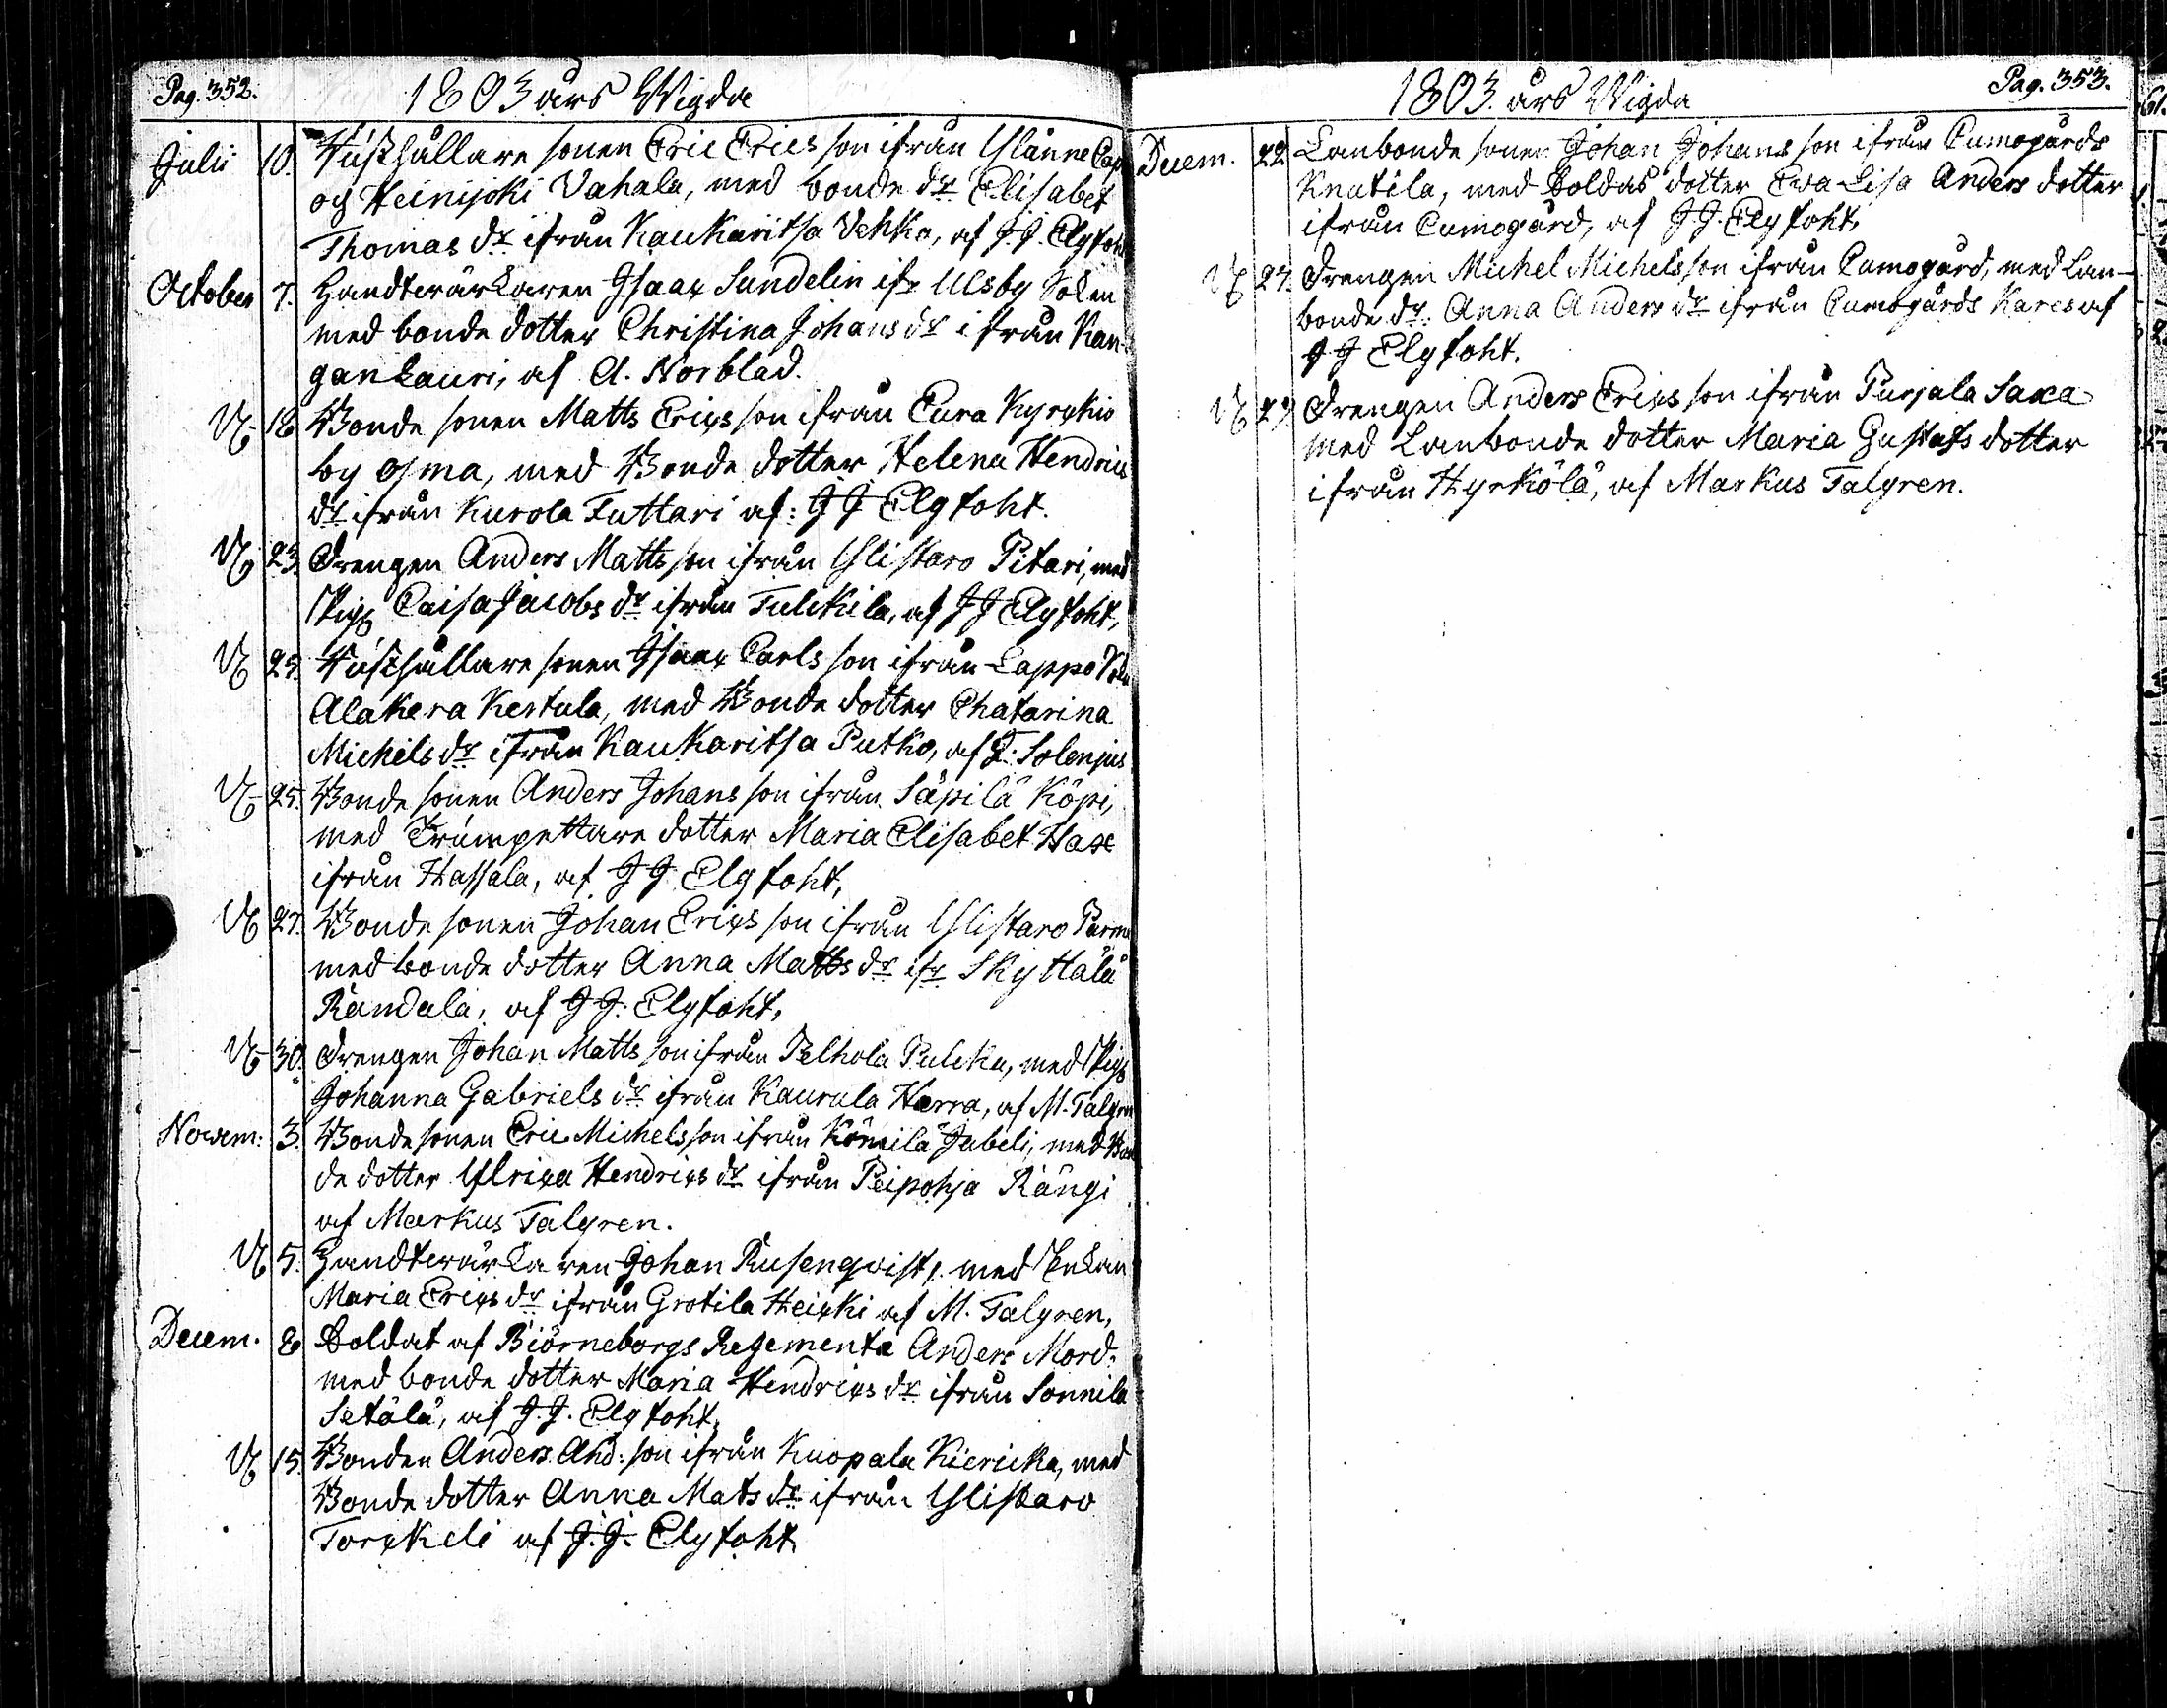 Pag. 352.
1803 års Wigda
Julii 10. Rusthållare sonen Eric Erics son ifrån YläNne Cap
och Heinijoki Vahala, med bonde dr Elisabet
Thomas dr ifrån Kaukaritsa Vehka, af J J. Elgfoht
October 7. Handtwärkaren Isaac Sundelin ifr Ulsby Soken
med bonde dotter Christina Johans dr ifrån Kan-
gan Lauri, af A. Norblad.
18 Bonde sonen Matts Erics son ifrån Eura Kyrckio
by Ojma, med Bonde dotter Helena Hendrics
dr ifrån Kurola Tuttari af: J J Elgfoht.
23. Drengen Anders Matts son ifrån Ylistaro Pitari, med
Pig: Caisa Jacobs dr ifrån Tulckila, af J J Elgfoht,
25. Rusthållare sonen Isaac Carls son ifrån Lappo Sokn
Alakera Kestula, med Bonde dotter Chatarina
Michels dr ifrån Kaukaritsa Putko, af Solenius
25. Bonde sonen Anders Johans son ifrån Säpilä Köpi,
med Trumpettare dotter Maria Elisabet Hase
ifrån Hassala, af J J Elgfoht,
27. Bonde sonen Johan Erics son ifrån Ylistaro Parma
med bonde dotter Anna Matts dr ifr Skyttälä
Randala, af J J: Elgfoht,
30. Drengen Johan Matts son ifrån Pelhola Pulcka, med Pig:
Johanna Gabriels dr ifrån Kaurula Harra, af M. Talgren
Novem: 3. Bonde sonen Eric Michels son ifrån Kömilä Jubeli, med Bon
de dotter Ulrica Hendrics dr ifrån Peipohja Rängi
af Markus Talgren.
5. Handtwärkaren Johan Rusenqvist, med Enkan
Maria Erics dr ifrån Grotila Heicki af M. Talgren,
Decem. 8 Soldat af Biörneborgs Regemente Anders Mord:
med bonde dotter Maria Hendrics dr ifrån Sonnila
Setälä, af J. J. Elgfoht,
15. Bonden Anders And: son ifrån Kuopala Kiericka, med
Bonde dotter Anna Mats dr ifrån Ylistaro
Torckeli af J. J. Elgfoht.
Pag. 353.
1803. års Wigda
Decem. 22 Lanbonde sonen Johan Johans son ifrån Cumogårds
Knutila, med Soldas dotter Eva Lisa Anders dotter
ifrån Cumogård, af J. J. Elgfoht,
27. Drengen Michel Michels son ifrån Cumogård, med Lan-
bonde dr: Anna Anders dr ifrån Cumogårds Kares af
J J Elgfoht.
29 Drengen Anders Erics son ifrån Purjala Saxa
med Lanbonde dotter Maria Gustafs dotter
ifrån Hyrkölä, af Markus Talgren.